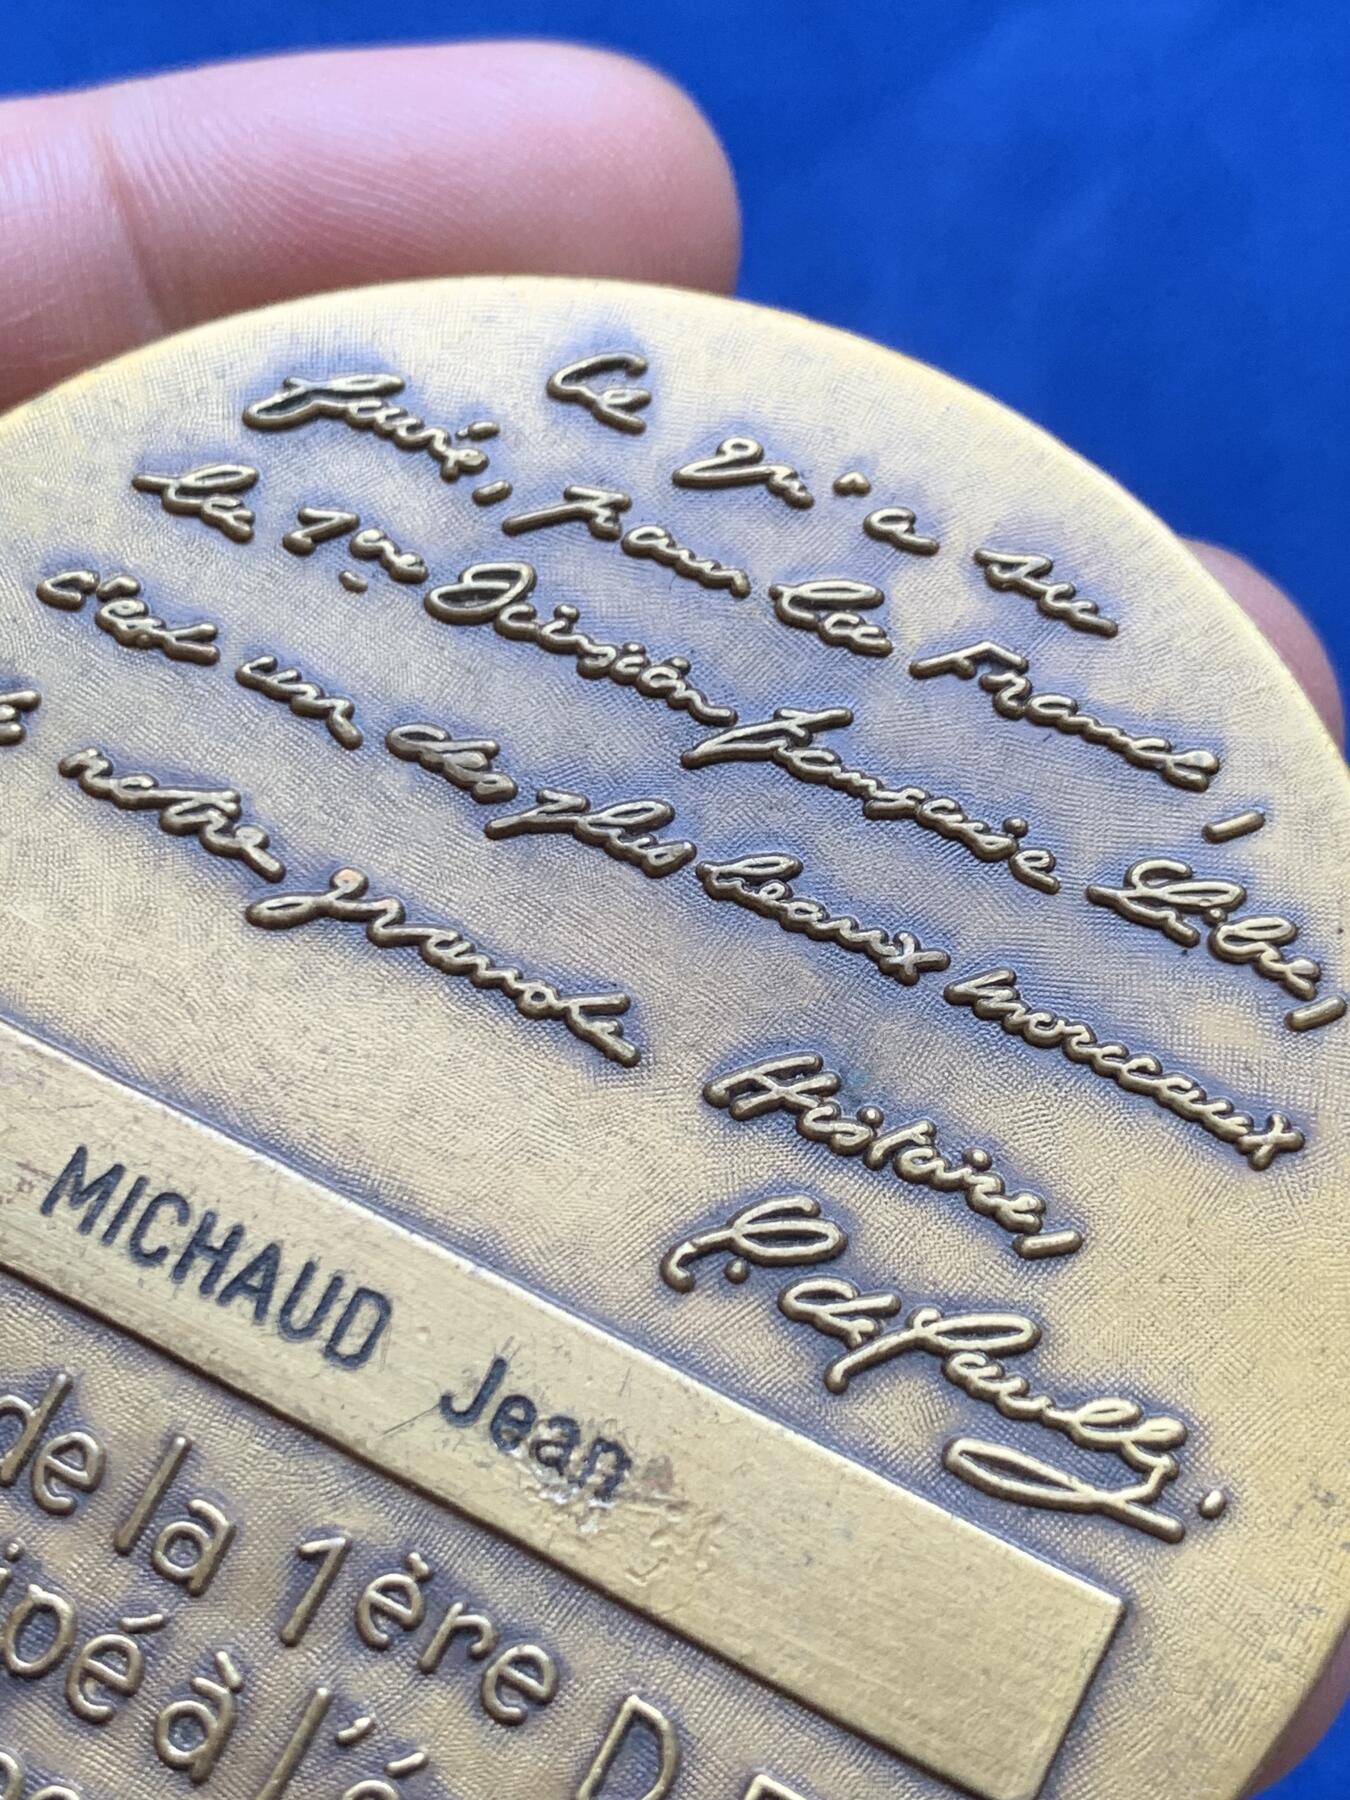 Ce qu'a su
faire, pour la France,
la 1ère Division française Libre,
c'est un des plus beaux morceaux
de notre grande
Histoire,
C. de Gaulle.
MICHAUD Jean
de la 1ère D
ipé à l'é